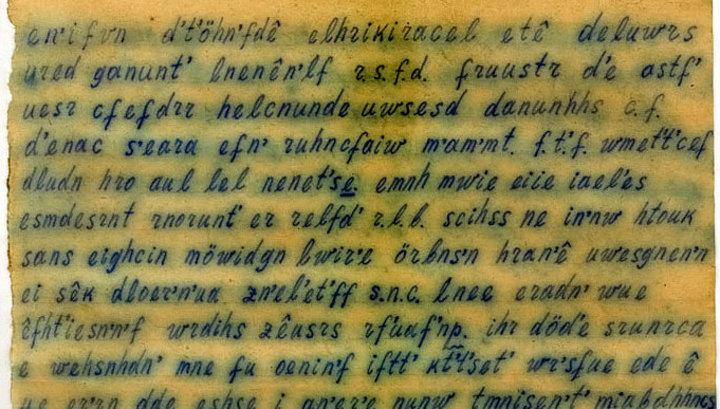 en'ifvn d't'öhn'fdê elhrikiracel etê deluwrs
ured ganunt' lnenên'lf r.s.f.d. fruustr d'e astf'
uesr cfefdrr helcnunde uwsesd danunhhs c.f.
d'enac s'eara efn' ruhncfaiw m'am'mt. f.t'.f. wmet't'cef
dludn hro aul lel nenet'se. emnh mwie eiie iael'es
esmdesrnt rnorunt' er relfd' r.l.l. scihss ne in'nw htouk
sans eighcin möwidgn lwir'e örlnsn hran'ê uwesgnen'n
ei sêk dloer'n'ua zn'el'et'ff s.n.c. lnee eradn' wue
êfht'iesn'n'f wrdihs zêusrs rf'uaf'np. ihr död'e srunrca
e wehsnhdn' mne fu oenin'f iftt' kt't'set' wr'sfue ede ê
ue er'rn dde eshse i an'er'e nunw tmnisen't'